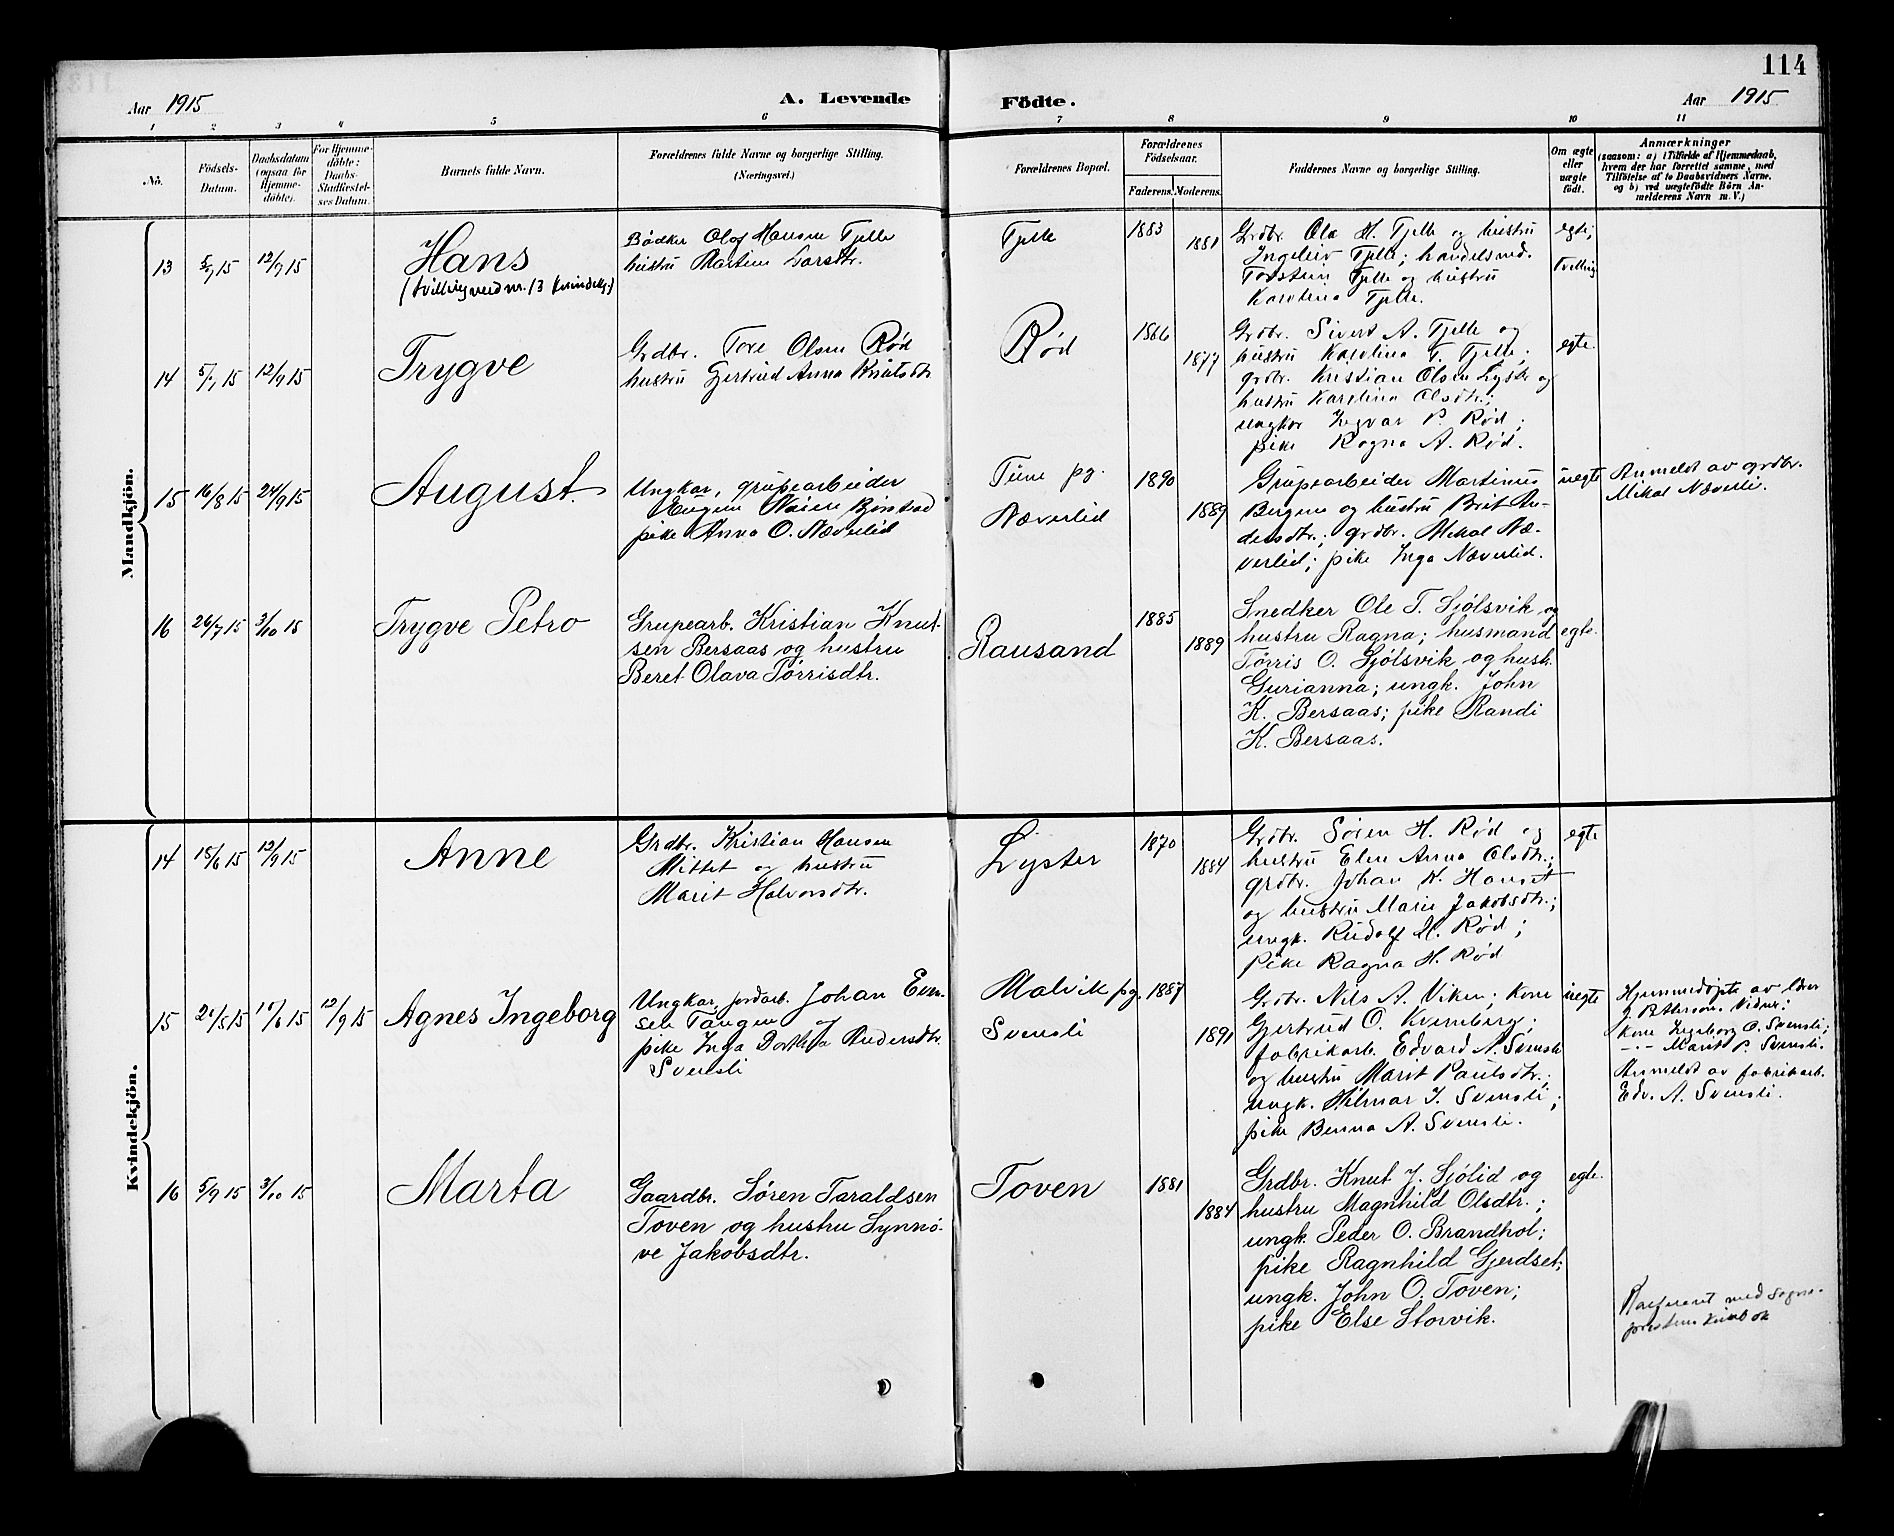 114
Aar 1915
A. Levende Födte.
Aar 1915
1 2 3 4 5 6 7 8 9 10 11
No.
Födsels-
Datum.
Daabsdatum
(ogsaa for
Hjemme-
döbte).
For Hjemme-
döbte:
Daabs-
Stadfæstel-
ses Datum.
Barnets fulde Navn.
Forældrenes fulde Navne og borgerlige Stilling.
(Næringsvei.)
Forældrenes Bopæl.
Forældrenes
Födselsaar.
Faderens. Moderens.
Faddernes Navne og borgerlige Stilling.
Om ægte
eller
uægte
födt.
Anmærkninger
(saasom: a) i Tilfælde af Hjemmedaab,
hvem der har forrettet samme, med
Tilföielse af to Daabsvidners Navne,
og b) ved uægtefödte Börn An-
melderens Navn m. V.)
Mandkjön.
13 5/9 15 12/9 15
Hans
(tvilling med nr. 13 kvindekj.)
Bødker Olaf Hansen Tjelle
hustru Martine Larsdtr.
Tjelle
1883
1881
Grdbr. Ole H. Tjelle og hustru
Ingeleiv Tjelle; handelsmd.
Torstein Tjelle og hustru
Karolina Tjelle.
egte;
tvilling
14 5/7 15 12/9 15
Trygve
Grdbr. Tore Olsen Rød
hustru Gjertrud Anna Knutsdtr
Rød
1866
1877
Grdbr. Sivert A. Tjelle og
hustru Karolina T. Tjelle;
grdbr. Kristian Olsen Lyster og
hustru Karolina Olsdtr.;
ungkar Ingvar P. Rød;
pike Ragna A. Rød.
egte.
15 16/8 15 24/9 15
August
Ungkar, grupearbeider
pike Anna O. Næverlid
Tune pg.
Næverlid
1890
1889
Grupearbeider Martinus
Bergum og hustru Brit An-
dersdtr.; grdbr. Mikal Næ-
verlid; pike Inga Næverlid.
uegte
Anmeldt av grdbr.
Mikal Næverli.
16 26/7 15 3/10 15
Trygve Petro
Grupearb. Kristian Knut-
sen Bersaas og hustru
Beret Olava Tørrisdtr.
Rausand
1885
1889
Snedker Ole T. Sjølsvik og
hustru Ragna; husmand
Tørris O. Sjølsvik og hustr.
Gurianna; ungk. John
K. Bersaas; pike Randi
K. Bersaas.
egte.
Kvindekjön.
14 18/6 15 12/9 15
Anne
Grdbr. Kristian Hansen
Mittet og hustru
Marit Halvorsdtr.
Lyster
1870
1884
Grdbr. Søren H. Rød og
hustru Elen Anna Olsdtr.;
grdbr. Johan K. Hanset
og hustru Marie Jakobsdtr.;
ungk. Rudolf M. Rød;
pike Ragna H. Rød
egte
15 24/5 15 17/6 15 12/9 15
Agnes Ingeborg
Ungkar, jordarb. Johan Even-
sen Tangen og
pike Inga Dorthea Andersdtr.
Svensli
Malvik pg.
Svensli
1887
1891
Grdbr. Nils A. Viken; kone
Gjertrud O. Kvernberg;
fabrikarb. Edvard A. Svensli
og hustru Marit Paulsdtr.;
ungk. Hilmar J. Svensli;
pike Benna A. Svensli.
uegte
Hjemmedøpte av lærer
J. Petterson. Vidner:
kone Ingeborg O. Svensli;
— " — Marit P. Svensli.
Anmeldt av fabrikarb.
Edv. A. Svensli.
16 5/9 15 3/10 15
Marta
Gaardbr. Søren Taraldsen
Toven og hustru Synnø-
ve Jakobsdtr.
Toven
1881
1884
Grdbr. Knut J. Sjølid og
hustru Magnhild Olsdtr.;
ungk. Peder O. Brandhol;
pike Ragnhild Gjerdset;
ungk. John O. Toven;
pike Else Storvik.
egte.
Konfereret med sogne-
prestens kirkebok